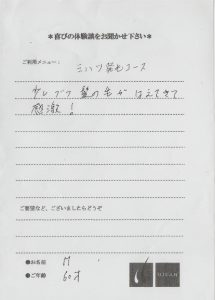 ＊喜びの体験談をお聞かせ下さい＊
ご利用メニュー：
発毛コース
少しずつ髪の毛がはえてきて
感激！
ご要望など、ございましたらどうぞ
●お名前 M
●ご年齢 60才